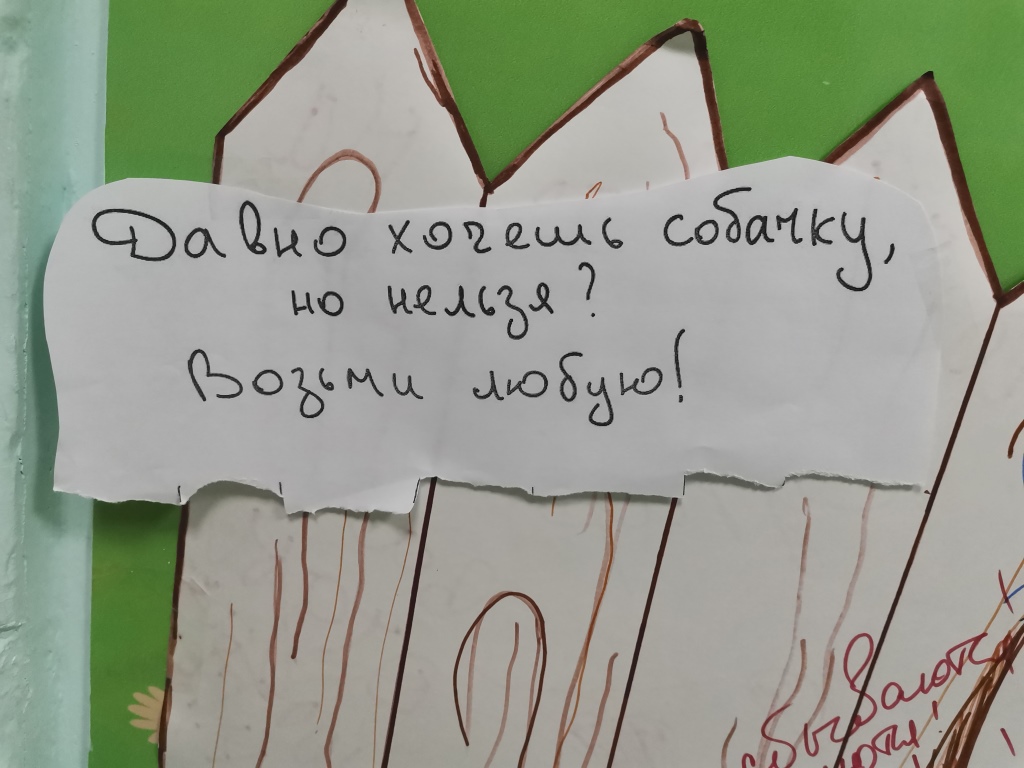 Давно хочешь собачку,
но нельзя?
Возьми любую!